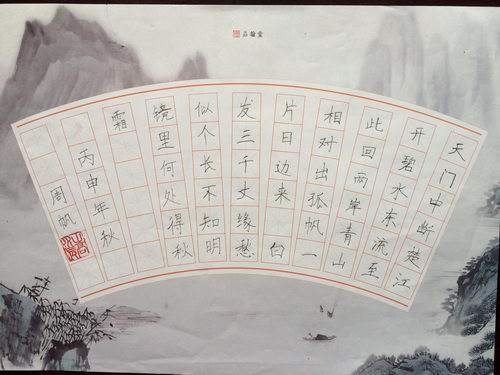 品翰堂
天门中断楚江
开碧水东流至
此回两岸青山
相对出孤帆一
片日边来 白
发三千丈缘愁
似个长不知明
镜里何处得秋
霜
丙申年秋
周帆